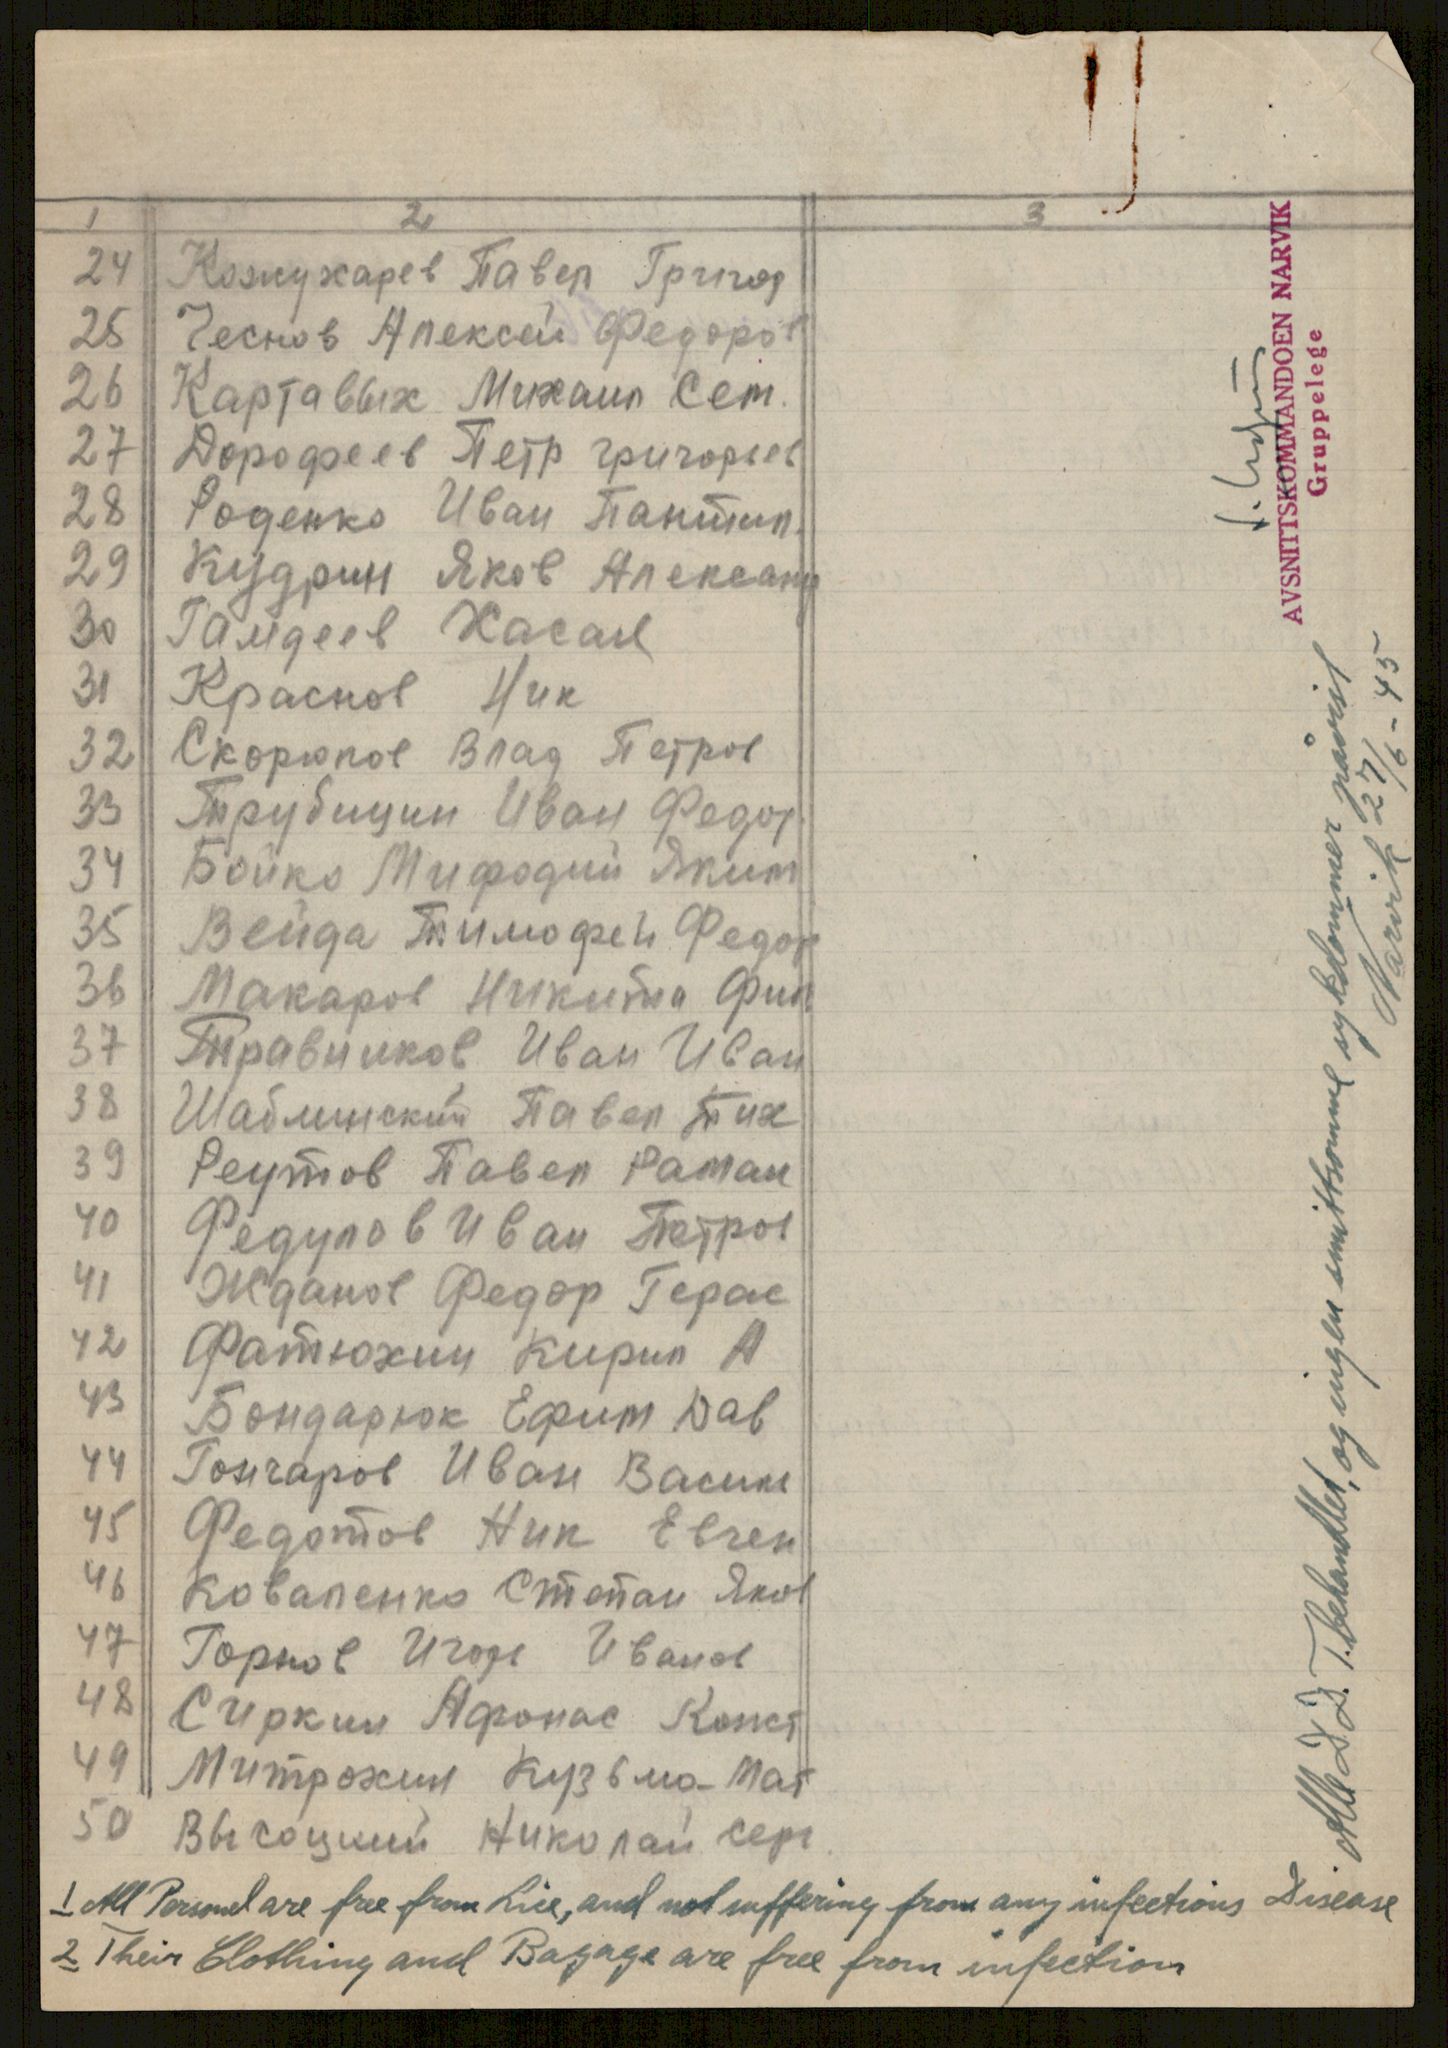 1 2 3
24 Кожухарев Павел Григор
25 Чеснов Алексей Федоров
26 Картавых Михаил Сем.
27 Дорофеев Петр Григорьев
28 Роденко Иван Пантил.
29 Кудрин Яков Александ
30 Гамдеев Хасан
31 Краснов Ник
32 Скорюпов Влад Петров
33 Трубицин Иван Федор.
34 Бойко Мифодий Яким
35 Вейда Тимофей Федор
36 Макаров Никита Фил
37 Травников Иван Иван
38 Шаблинский Павел Тих
39 Реутов Павел Раман
40 Федулов Иван Петров
41 Жданов Федор Герас
42 Фатюхин Кирил А
43 Бондарюк Ефим Дав
44 Гончаров Иван Васил
45 Федотов Ник Евген
46 Коваленко Степан Яков
47 Горнов Игорь Иванов
48 Сиркин Афонас Конст
49 Митрохин Кузьма Мат
50 Высоцкий Николай Серг.
1 All Personel are free from Lice, and not suffering from any infections Disease
2 Their Clothing and Bagage are free from infection
Alle D.D.T. behandlet, og ingen smittsomme sykdommer påvist
Narvik 27/6-45
AVSNITTSKOMMANDOEN NARVIK
Gruppelege